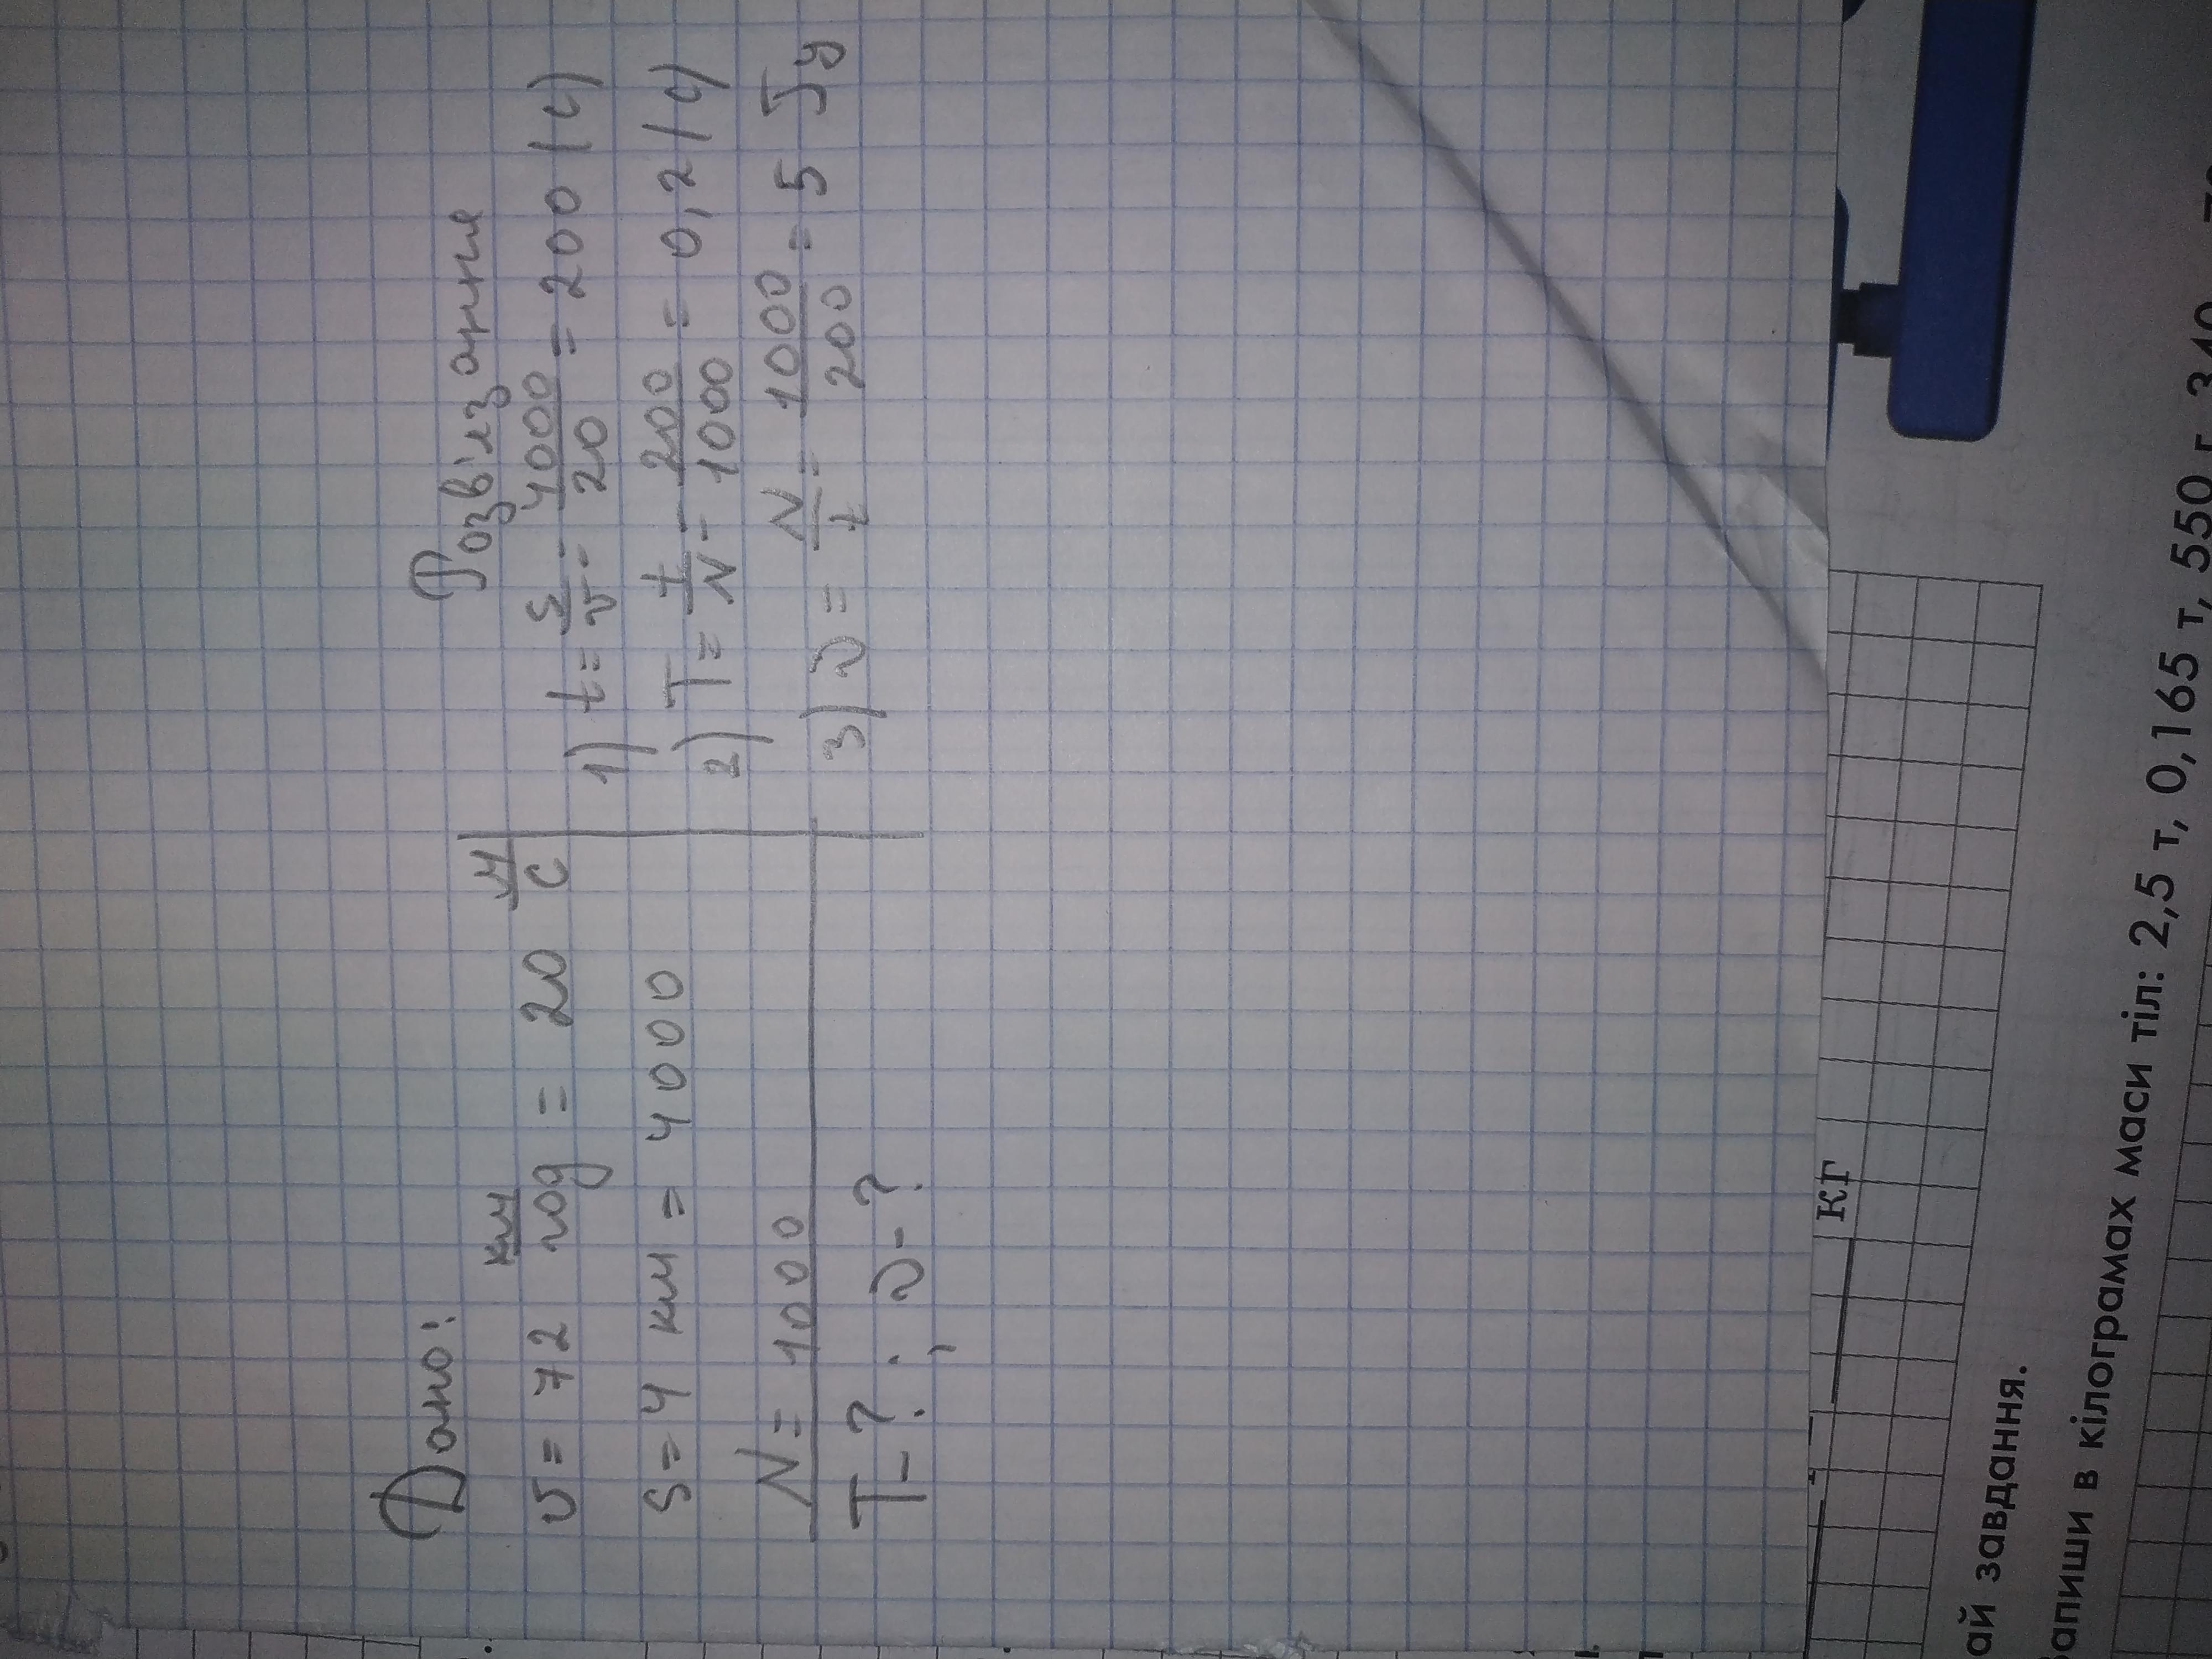 Дано:
υ = 72 км/год = 20 м/с
S = 4 км = 4000
N = 1000
T - ? ; ν - ?
Розв'язання
1) t = S/υ = 4000/20 = 200 (с)
2) T = t/N = 200/1000 = 0,2 (с)
3) ν = N/t = 1000/200 = 5 Гц
кг
ай завдання.
апиши в кілограмах маси тіл: 2,5 т, 0,165 т, 550 г, 340